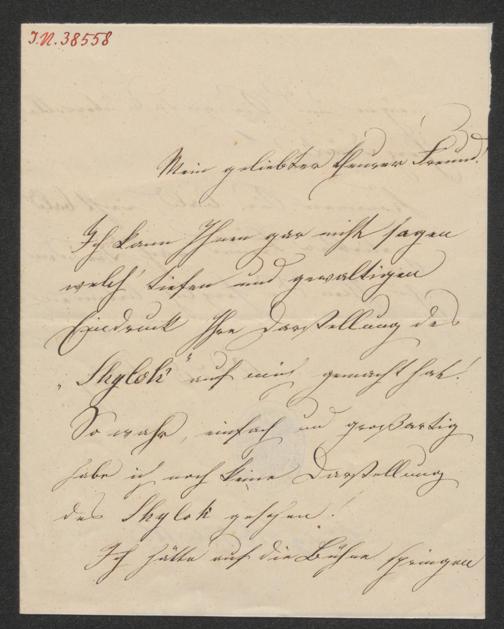 I.N. 38558
Mein geliebter theurer Freund!
Ich kann Ihnen gar nicht sagen
welch' tiefen und gewaltigen
Eindruck Ihre Darstellung des
„Shylok" auf mich gemacht hat!
So wahr, einfach und großartig
habe ich noch keine Darstellung
des Shylok gesehen!
Ich hätte auf die Bühne springen